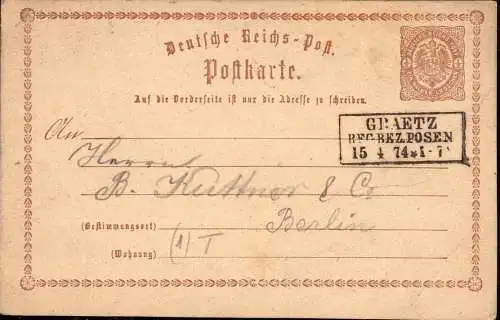 Deutsche Reichs-Post.
Postkarte.
Auf die Vorderseite ist nur die Adresse zu schreiben.
GRAETZ
REG.BEZ.POSEN
15 4 74
An
Herrn
B. Kuttner & Co
(Bestimmungsort) Berlin
(Wohnung)